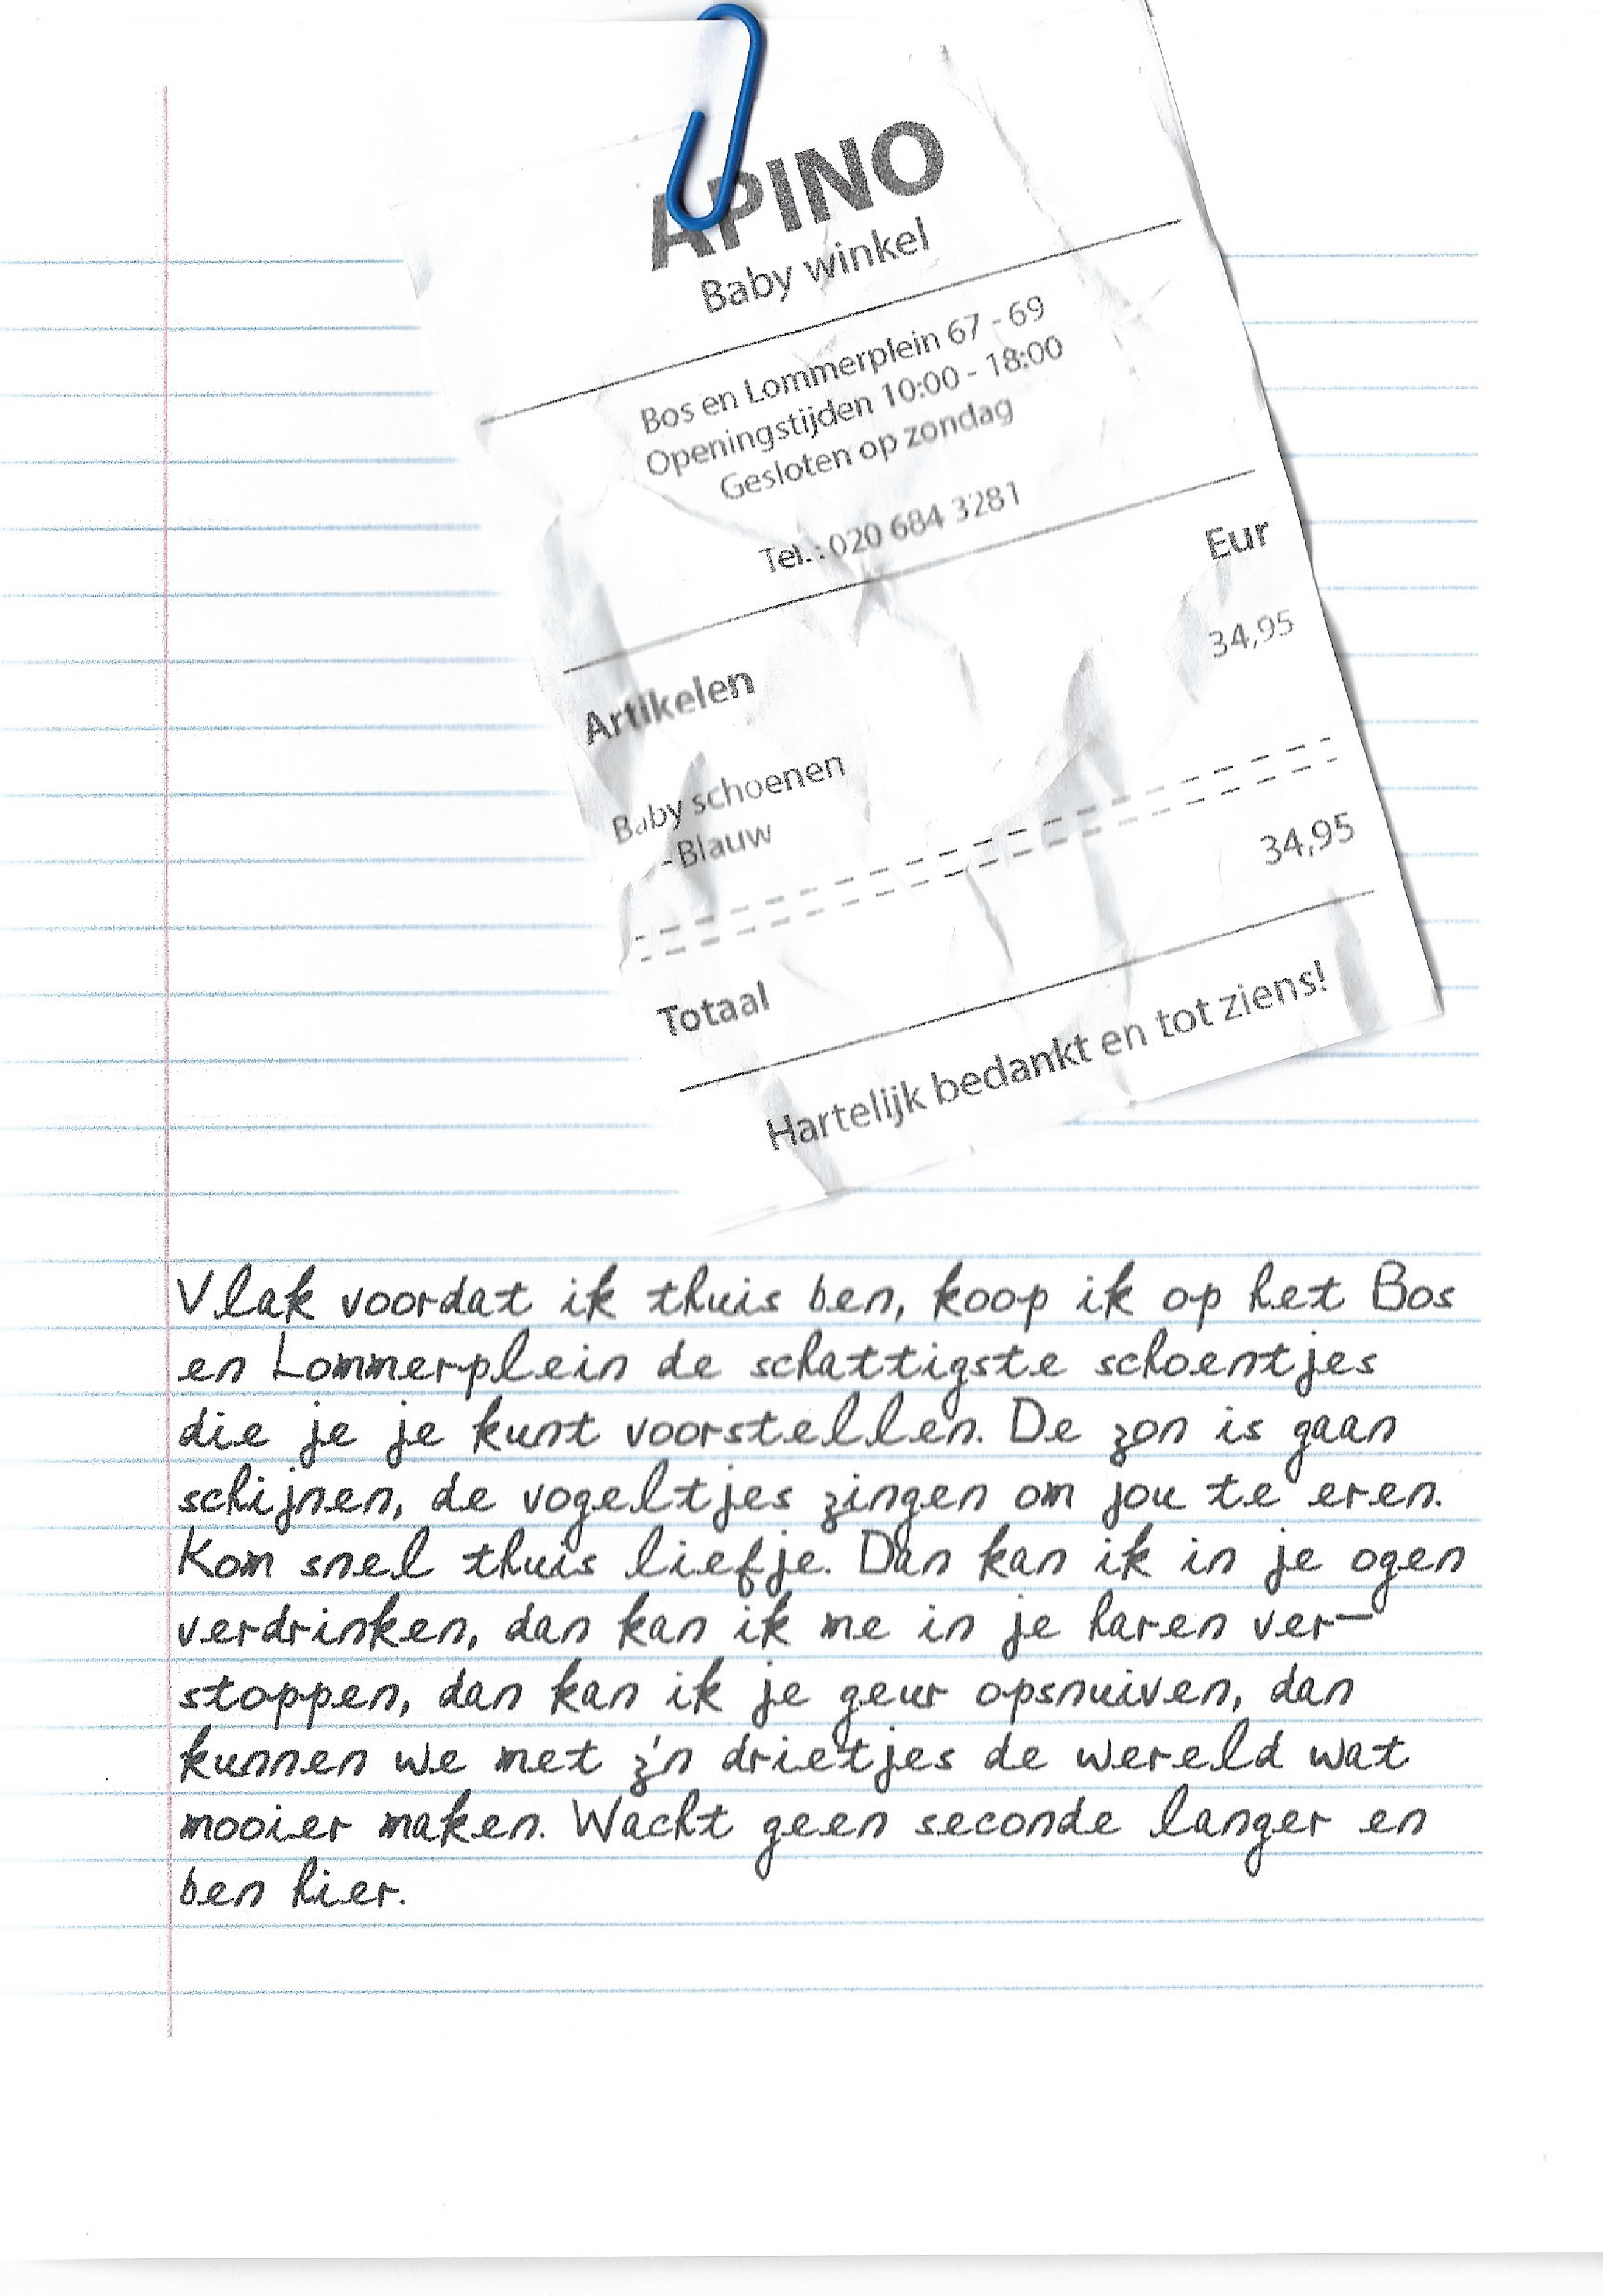 APINO
Baby winkel
Bos en Lommerplein 67 - 69
Openingstijden 10:00 - 18:00
Gesloten op zondag
Tel.: 020 684 3281
Eur
Artikelen
34,95
Baby schoenen
-Blauw
34,95
Totaal
Hartelijk bedankt en tot ziens!
Vlak voordat ik thuis ben, koop ik op het Bos
en Lommerplein de schattigste schoentjes
die je je kunt voorstellen. De zon is gaan
schijnen, de vogeltjes zingen om jou te eren.
Kom snel thuis liefje. Dan kan ik in je ogen
verdrinken, dan kan ik me in je haren ver-
stoppen, dan kan ik je geur opsnuiven, dan
kunnen we met z'n drietjes de wereld wat
mooier maken. Wacht geen seconde langer en
ben hier.